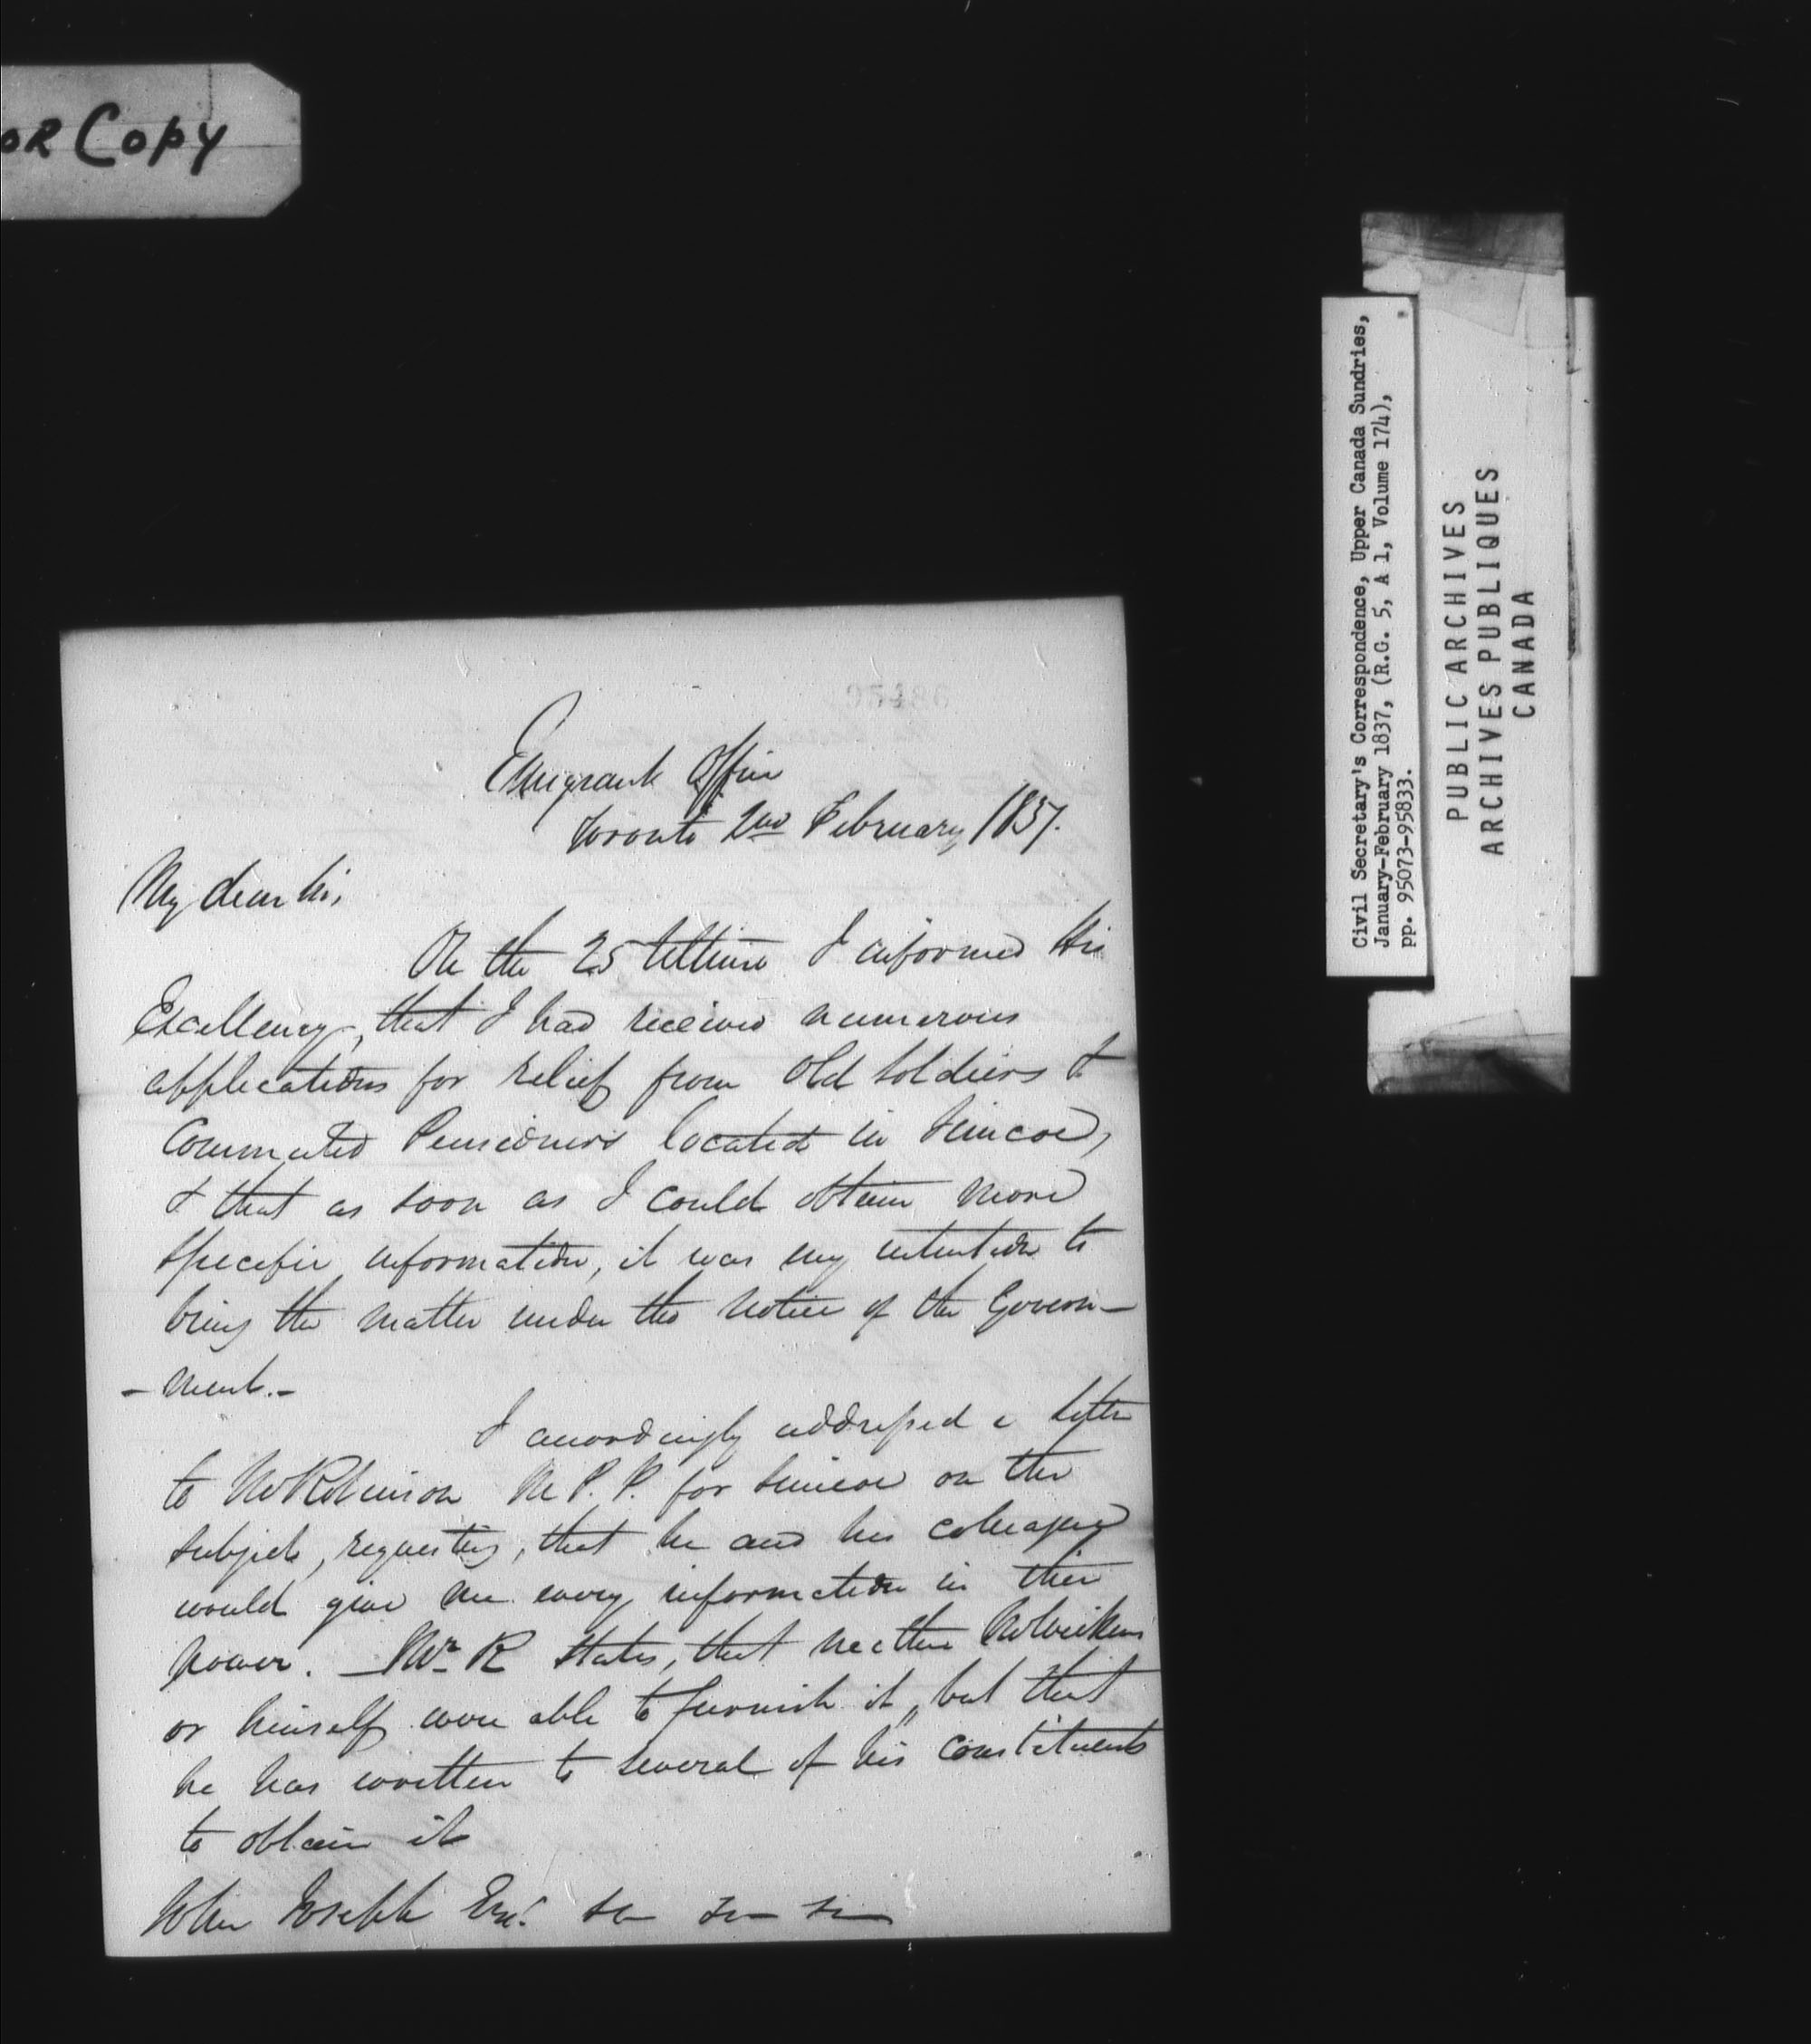 OR Copy
Civil Secretary's Correspondence, Upper Canada Sundries,
January-February 1837, (R.G. 5, A 1, Volume 174),
pp. 95073-95833.
PUBLIC ARCHIVES
ARCHIVES PUBLIQUES
CANADA
Emigrant Office
Toronto 2nd February, 1837.
My dear Sir,
On the 25 Ultimo I informed His
Excellency, that I had received numerous
applications for relief from old Soldiers &
Commuted Pensioners located in Simcoe,
& that as soon as I could obtain more
specific information, it was my intention to
bring the matter under the notice of the Govern-
-ment.-
I accordingly addressed a letter
to Mr Robinson M.P.P. for Simcoe on the
subject, requesting, that he and his colleague
would give me every information in their
power. _ Mr R states, that neither Mr Wickens
or himself were able to furnish it, but that
he has written to several of his Constituents
to obtain it
John Joseph Esqr.